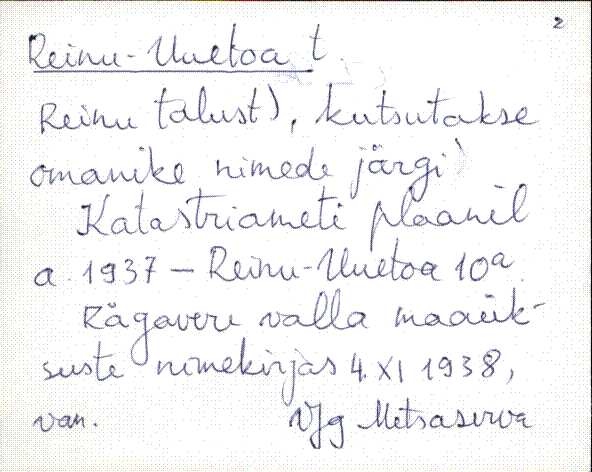 2
Reinu-Uuetoa t.
Reinu talust), kutsutakse
omanike nimede järgi
Katastriameti plaanil
a. 1937 – Reinu-Uuetoa 10a.
Rägavere valla maaük-
suste nimekirjas 4. XI 1938,
van. Vjg Metsaserva